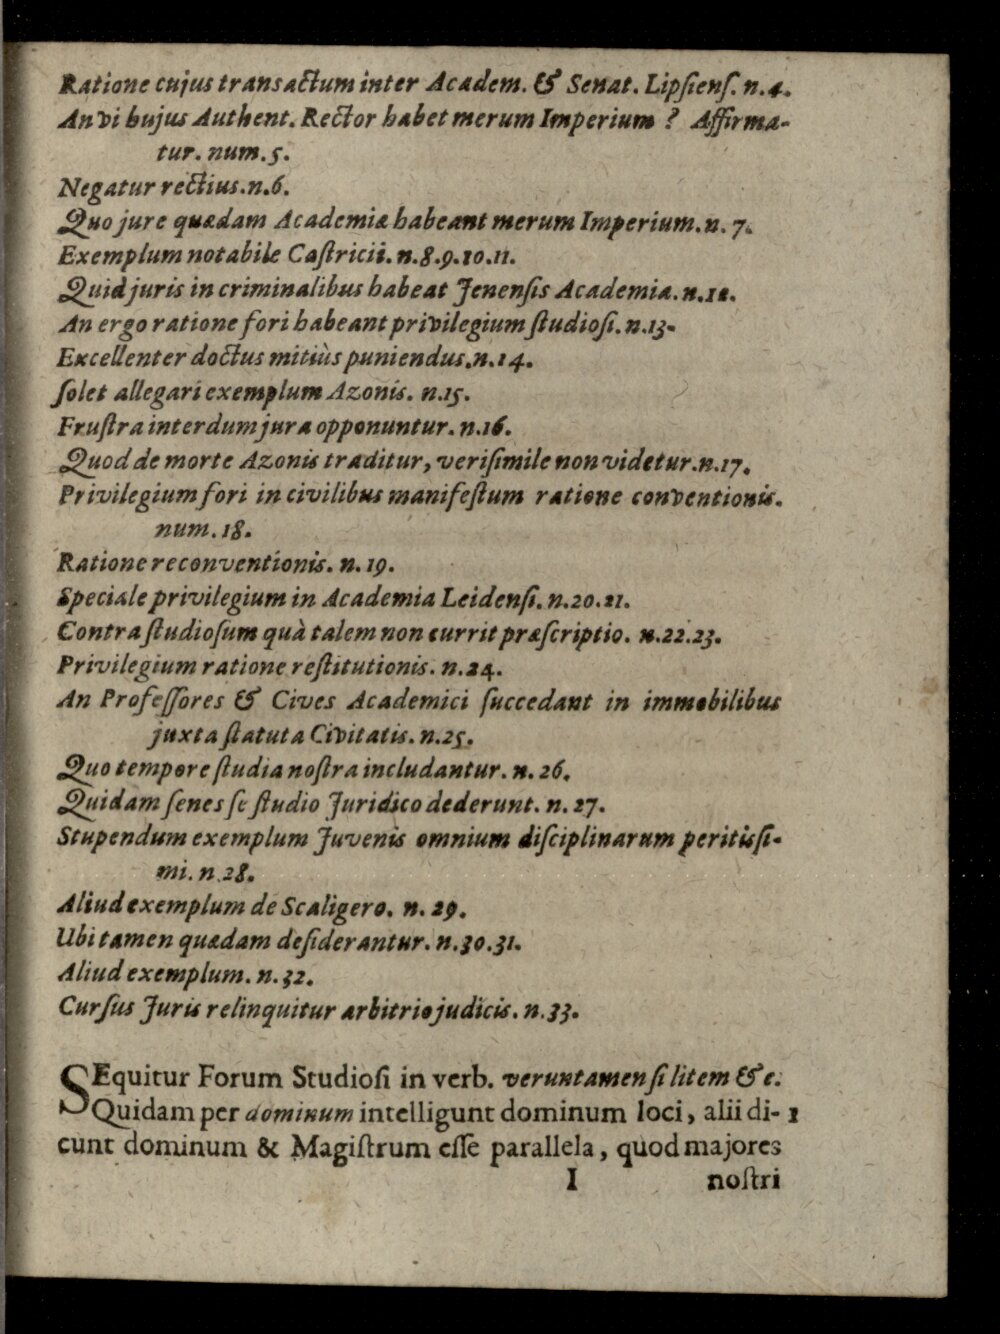 Ratione cujus transactum inter Academ. & Senat. Lipſienſ. n.4.
An vi hujus Authent. Rector habet merum Imperium ? Affirma-
tur. num. 5.
Negatur rectius. n.6.
Quo jure quædam Academiæ habeant merum Imperium. n. 7.
Exemplum notabile Caſtricii. n.8.9.10.11.
Quid juris in criminalibus habeat Jenenſis Academia. n.12.
An ergo ratione fori habeant privilegium ſtudioſi. n.13.
Excellenter doctus mitiùs puniendus. n.14.
ſolet allegari exemplum Azonis. n.15.
Fruſtra interdum jura opponuntur. n.16.
Quod de morte Azonis traditur, veriſimile non videtur. n.17.
Privilegium fori in civilibus manifeſtum ratione conventionis.
num. 18.
Ratione reconventionis. n. 19.
Speciale privilegium in Academia Leidenſi. n.20.21.
Contra ſtudioſum quà talem non currit præſcriptio. n.22.23.
Privilegium ratione reſtitutionis. n.24.
An Profeſſores & Cives Academici ſuccedant in immobilibus
juxta ſtatuta Civitatis. n.25.
Quo tempore ſtudia noſtra includantur. n. 26.
Quidam ſenes ſe ſtudio Juridico dederunt. n. 27.
Stupendum exemplum Juvenis omnium diſciplinarum peritisſi-
mi. n.28.
Aliud exemplum de Scaligero. n. 29.
Ubi tamen quædam deſiderantur. n.30.31.
Aliud exemplum. n.32.
Curſus Juris relinquitur arbitrio judicis. n.33.
SEquitur Forum Studioſi in verb. veruntamen ſi litem &c.
Quidam per dominum intelligunt dominum loci, alii di- 1
cunt dominum & Magiſtrum eſſe parallela, quod majores
I noſtri